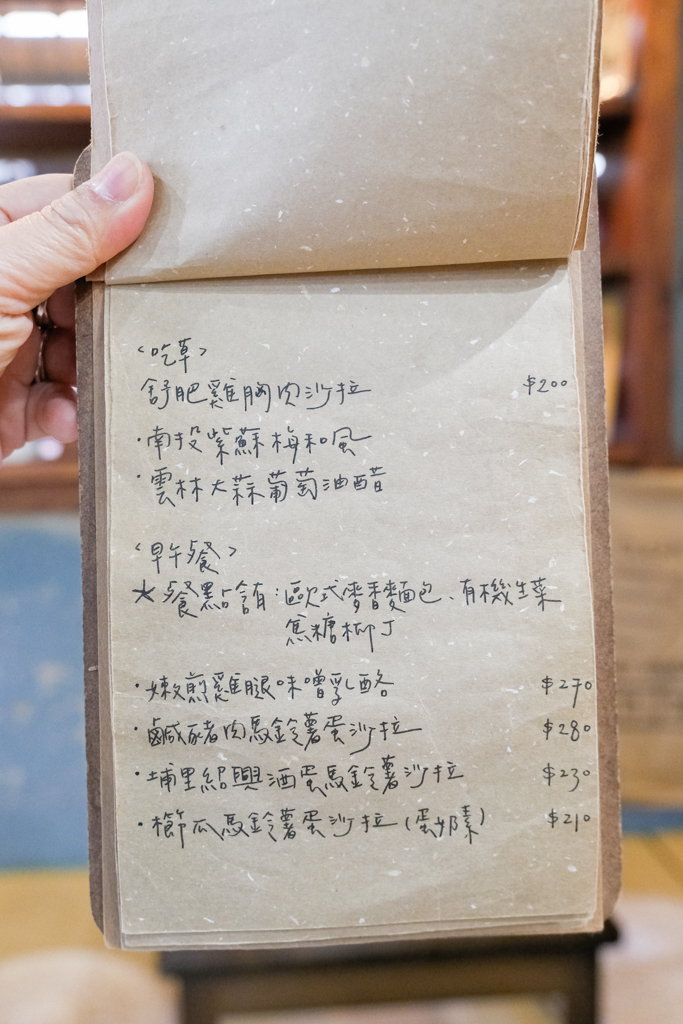 <吃草>
舒肥雞胸肉沙拉 $200
·南投紫蘇梅和風
·雲林大蒜葡萄油醋
<早午餐>
★餐點含有:歐式麥香麵包、有機生菜
焦糖柳丁
·嫩煎雞腿味噌乳酪 $270
·鹹豬肉馬鈴薯蛋沙拉 $280
·埔里紹興酒蛋馬鈴薯沙拉 $230
·櫛瓜馬鈴薯蛋沙拉(蛋奶素) $210